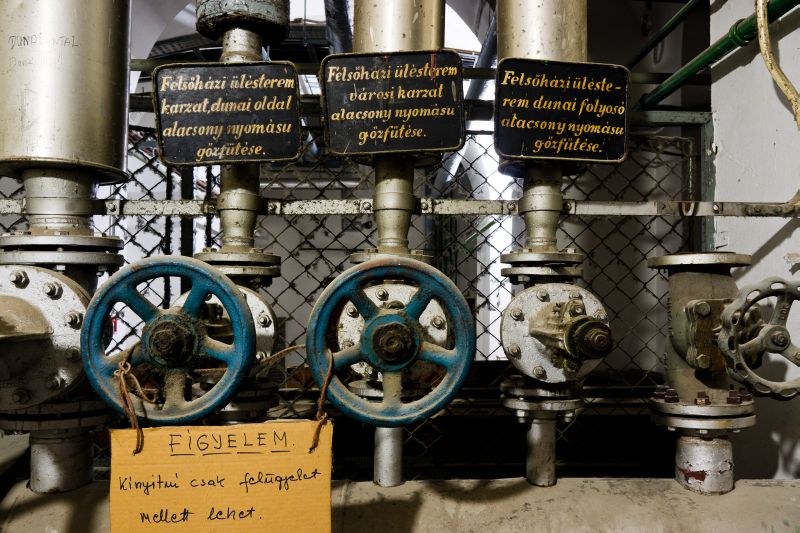 DUNAI
Felsőházi ülésterem
karzat, dunai oldal
alacsony nyomásu
gőzfütése.
Felsőházi ülésterem
városi karzat
alacsony nyomásu
gőzfütése.
Felsőházi üléste-
rem dunai folyosó
alacsony nyomásu
gőzfütése.
FIGYELEM.
Kinyitni csak felügyelet
mellett lehet.